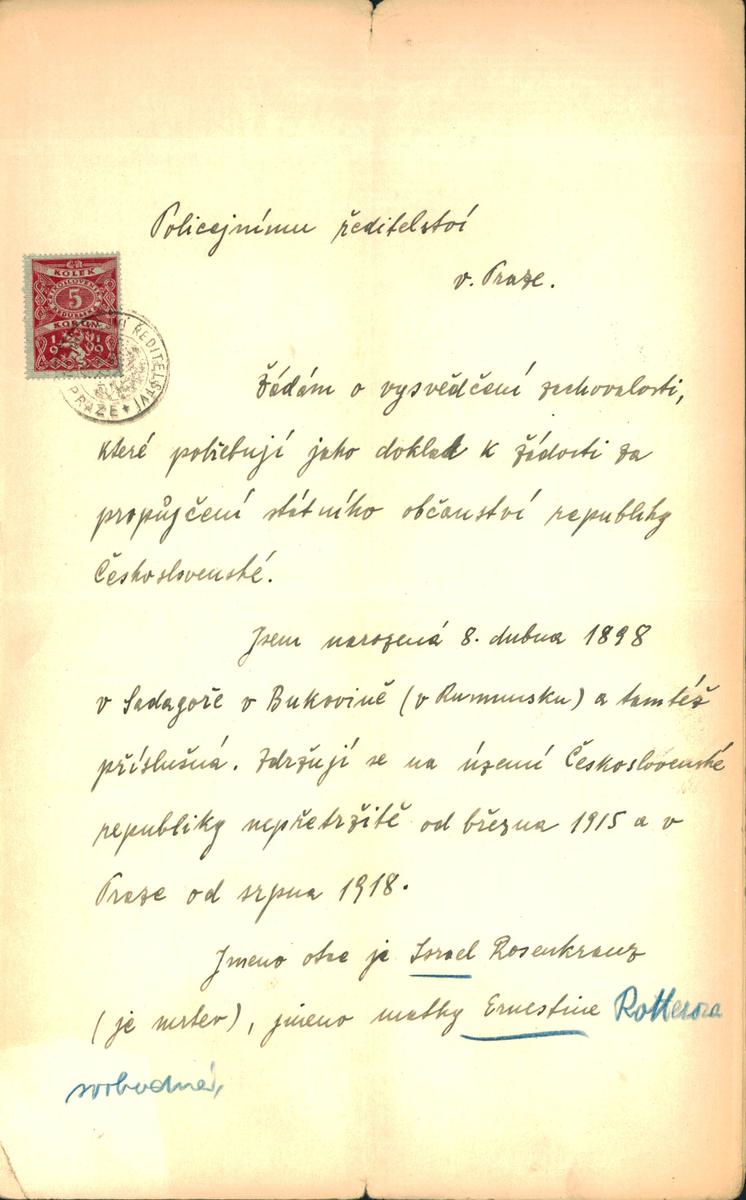 Policejnímu ředitelství
v. Praze.
ČR
KOLEK
5
KORUN
1919
ŘEDITELSTVÍ
PRAZE
Žádám o vysvědčení zachovalosti,
které potřebuji jako doklad k žádosti za
propůjčení státního občanství republiky
Československé.
Jsem narozená 8. dubna 1898
v Sadagoře v Bukovině (v Rumunsku) a tamtéž
příslušná. Zdržuji se na území Československé
republiky nepřetržitě od března 1915 a v
Praze od srpna 1918.
Jmeno otce je Israel Rosenkranz
(je mrtev), jmeno matky Ernestine Rotterova
svobodná,